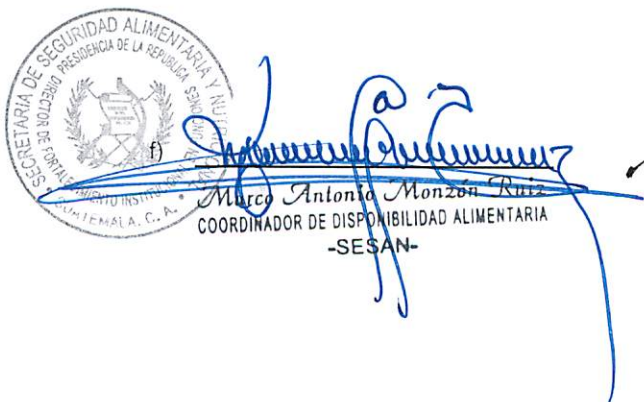 SECRETARIA DE SEGURIDAD ALIMENTARIA Y
PRESIDENCIA DE LA REPUBLICA
DIRECTOR DE FORTALECIMIENTO INSTITUCIONAL
GUATEMALA, C. A.
f)
Marco Antonio Monzón Ruiz
COORDINADOR DE DISPONIBILIDAD ALIMENTARIA
-SESAN-